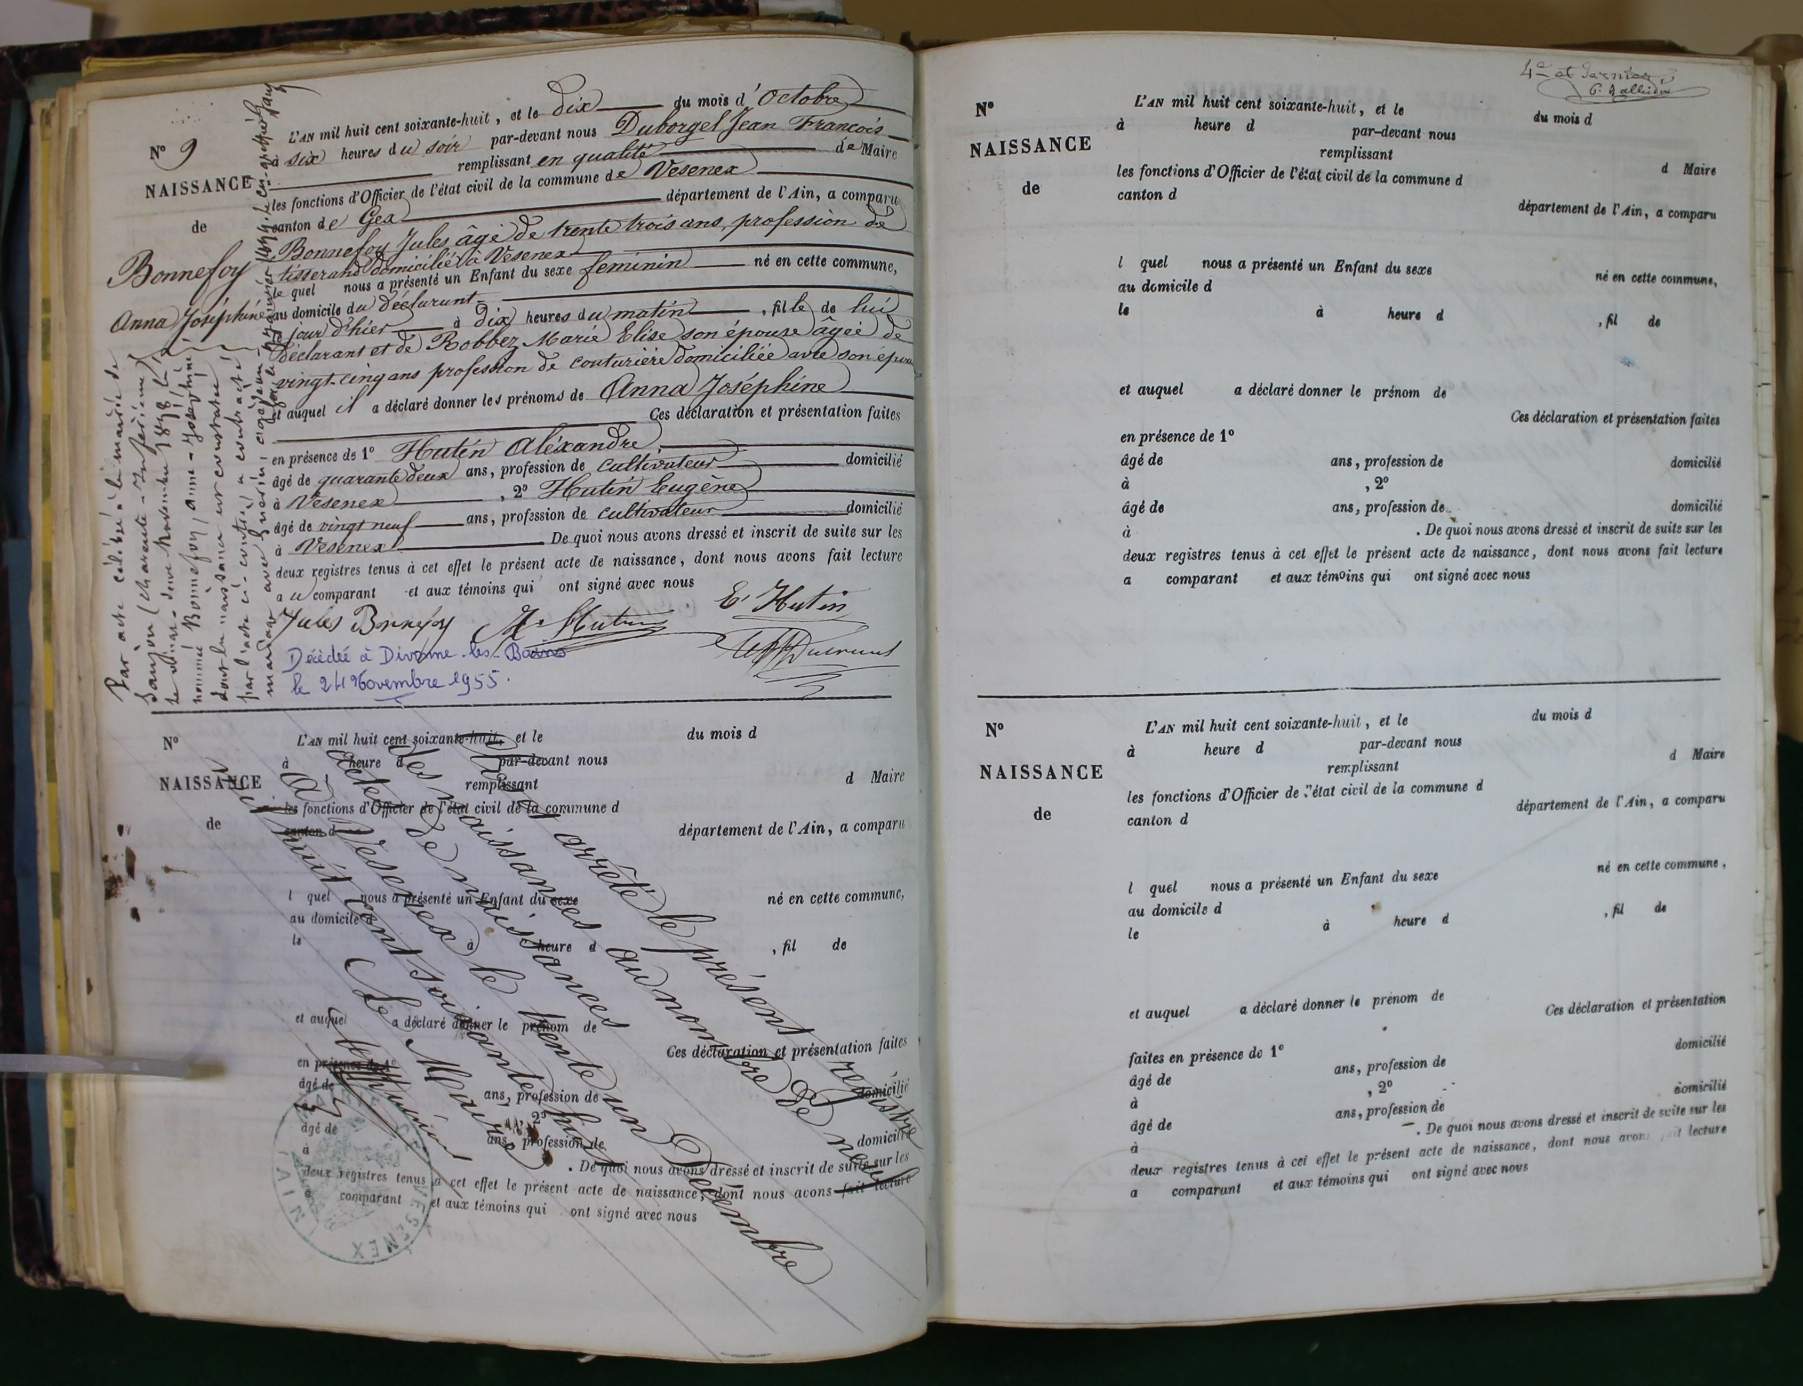 N° 9
NAISSANCE
de
Bonnefoy
Anna Joséphine
L'AN mil huit cent soixante-huit, et le dix du mois d'Octobre
à six heures du soir par-devant nous Duborgel Jean François
remplissant en qualité de Maire
les fonctions d'Officier de l'état civil de la commune de Vesenex
canton de Gex département de l'Ain, a comparu
Bonnefoy Jules âgé de trente trois ans, profession de
tisserand domicilié à Vesenex
le quel nous a présenté un Enfant du sexe feminin né en cette commune,
au domicile du déclarant
le jour d'hier à dix heures du matin, fille de lui
déclarant et de Robbez Marie Elise son épouse âgée de
vingt-cinq ans profession de couturière domiciliée avec son époux
et auquel il a déclaré donner les prénoms de Anna Joséphine
Ces déclaration et présentation faites
en présence de 1° Hutin Aléxandre
âgé de quarante deux ans, profession de cultivateur domicilié
à Vesenex, 2° Hutin Eugène
âgé de vingt neuf ans, profession de cultivateur domicilié
à Vesenex De quoi nous avons dressé et inscrit de suite sur les
deux registres tenus à cet effet le présent acte de naissance, dont nous avons fait lecture
au comparant et aux témoins qui ont signé avec nous
Jules Bonnefoy Hutin E. Hutin
Décédé à Divonne-les-Bains
le 24 Novembre 1955.
Par acte célébré à la mairie de
Saujon (Charente-Inférieure)
le douze novembre 1898 la
nommée Bonnefoy, Anne-Joséphine
dont la naissance est constatée
par l'acte ci-contre, a contracté
mariage avec Guérin,
N°
NAISSANCE
de
L'AN mil huit cent soixante-huit, et le du mois d
à heure d par-devant nous
remplissant d Maire
les fonctions d'Officier de l'état civil de la commune d
canton d département de l'Ain, a comparu
l quel nous a présenté un Enfant du sexe né en cette commune,
au domicile d
le à heure d , fil de
et auquel a déclaré donner le prénom de
Ces déclaration et présentation faites
en présence de 1°
âgé de ans, profession de domicilié
à 2°
âgé de ans, profession de domicilié
à . De quoi nous avons dressé et inscrit de suite sur les
deux registres tenus à cet effet le présent acte de naissance, dont nous avons fait lecture
a comparant et aux témoins qui ont signé avec nous
arrêté le présent registre
des naissances au nombre de neuf
acte de naissances
A Vesenex le trente un Décembre
mil huit cent soixante huit
Le Maire
VESENEX
(AIN)
4e et dernier
N°
NAISSANCE
de
L'AN mil huit cent soixante-huit, et le du mois d
à heure d par-devant nous
remplissant d Maire
les fonctions d'Officier de l'état civil de la commune d
canton d département de l'Ain, a comparu
l quel nous a présenté un Enfant du sexe né en cette commune,
au domicile d
le à heure d , fil de
et auquel a déclaré donner le prénom de
Ces déclaration et présentation faites
en présence de 1°
âgé de ans, profession de domicilié
à , 2°
âgé de ans, profession de domicilié
à . De quoi nous avons dressé et inscrit de suite sur les
deux registres tenus à cet effet le présent acte de naissance, dont nous avons fait lecture
a comparant et aux témoins qui ont signé avec nous
N°
NAISSANCE
de
L'AN mil huit cent soixante-huit, et le du mois d
à heure d par-devant nous
remplissant d Maire
les fonctions d'Officier de l'état civil de la commune d
canton d département de l'Ain, a comparu
l quel nous a présenté un Enfant du sexe né en cette commune,
au domicile d
le à heure d , fil de
et auquel a déclaré donner le prénom de
Ces déclaration et présentation
faites en présence de 1° domicilié
âgé de ans, profession de
à , 2° domicilié
âgé de ans, profession de
à . De quoi nous avons dressé et inscrit de suite sur les
deux registres tenus à cet effet le présent acte de naissance, dont nous avons fait lecture
a comparant et aux témoins qui ont signé avec nous